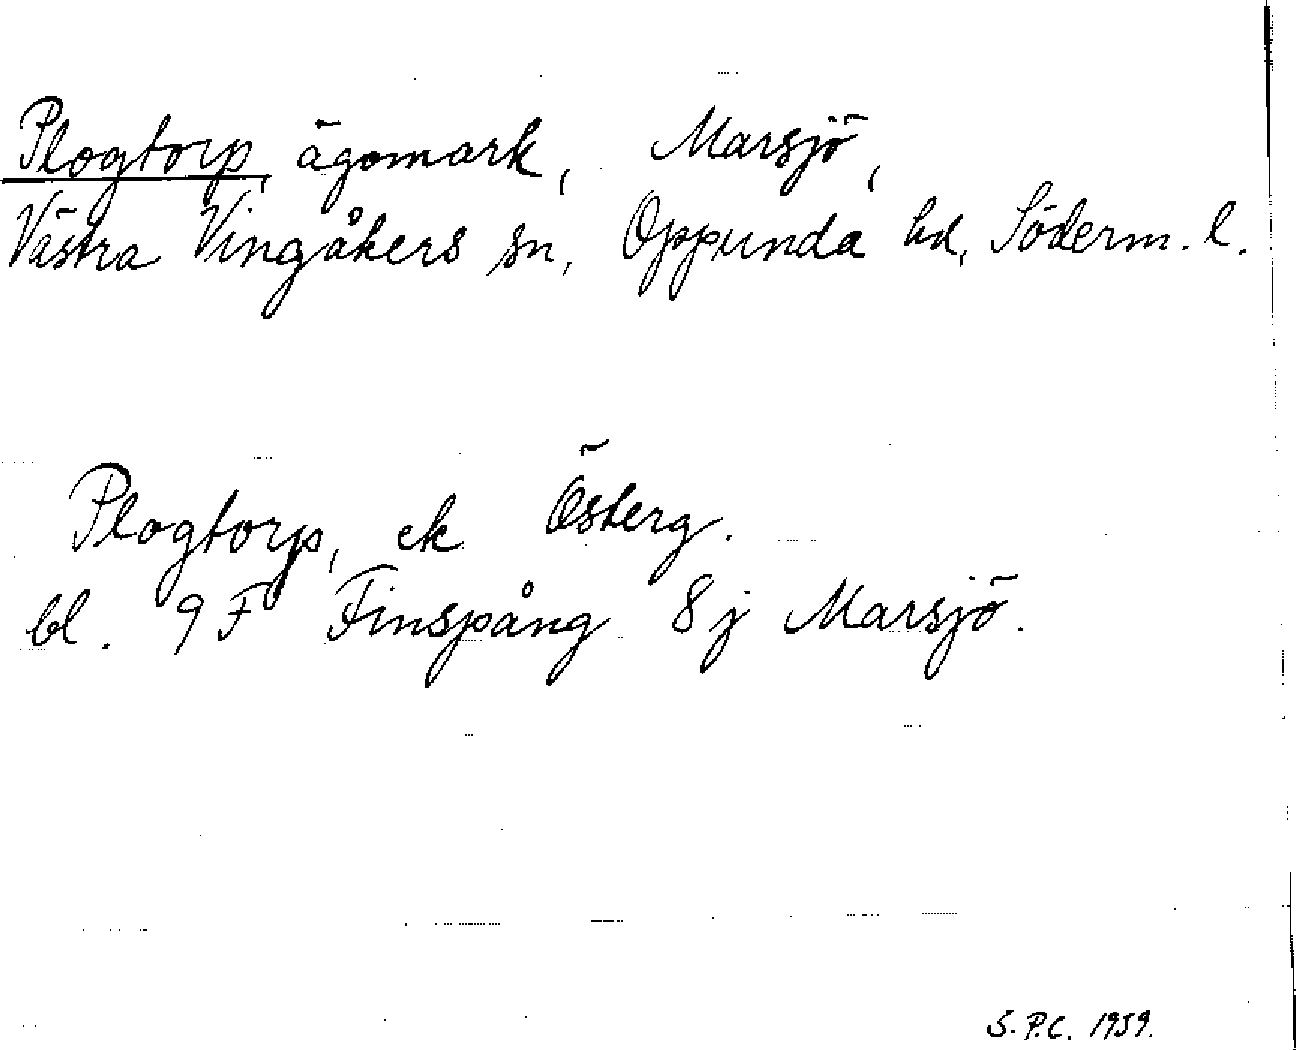 Plogtorp, ägomark, Marsjö,
Västra Vingåkers sn, Oppunda hd, Söderm. l.
Plogtorp, ek Österg.
bl. 9F Finspång 8j Marsjö.
S.P.C. 1959.